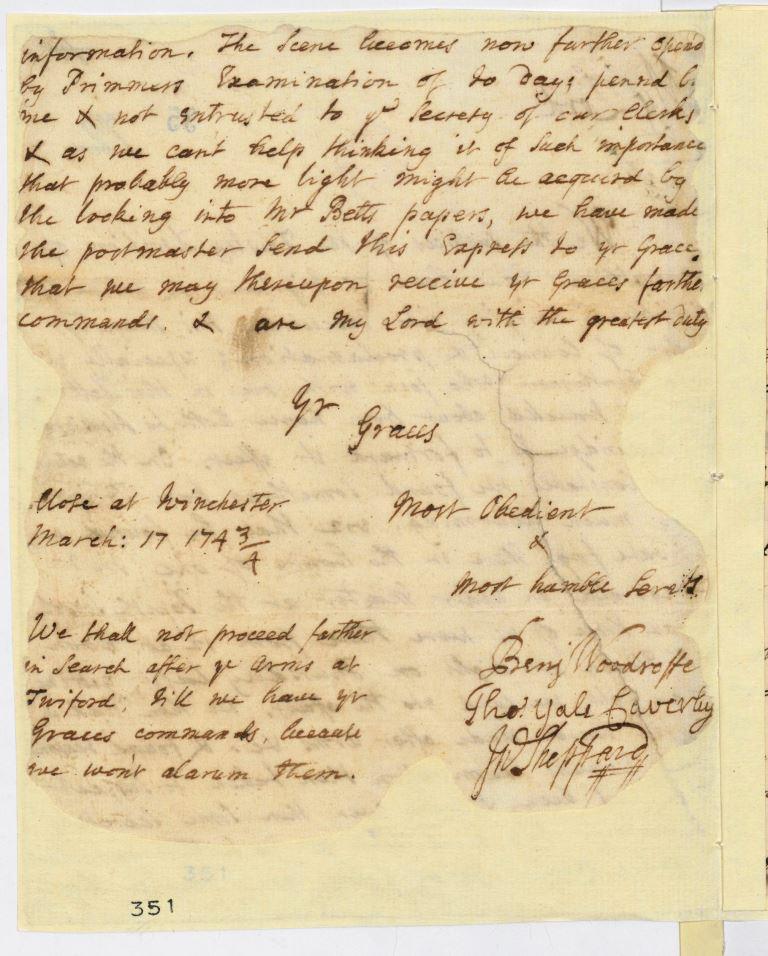 information. The Scene becomes now further open'd
by Primmers Examination of to Day; penn'd b
me & not entrusted to ye Secresy of our Clerks
& as we can't help thinking it of Such importance
that probably more light might be acquired by
the looking into Mr Betts papers, we have made
the postmaster Send this Express to yr Grace,
that we may thereupon receive yr Graces farthe
commands. & are My Lord with the greatest duty
Yr
Graces
Close at Winchester
March: 17 174 3/4
Most Obedient
&
Most humble Servts
We shall not proceed farther
in Search after ye Arms at
Twiford, till we have yr
Graces commands, because
we won't alarum them.
Benj Woodroffe
Thos: Yale
Jno Sheppard
351